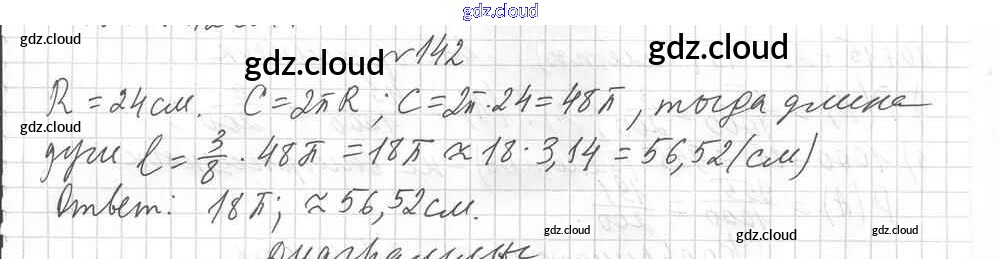 gdz.cloud
gdz.cloud
№142
gdz.cloud
gdz.cloud
R = 24 см. C = 2πR; C = 2π·24 = 48π, тогда длина
gdz.cloud
дуги l = 3/8 · 48π = 18π ≈ 18 · 3,14 = 56,52 (см)
Ответ: 18π; ≈ 56,52 см.
gdz.cloud
gdz.cloud
gdz.cloud